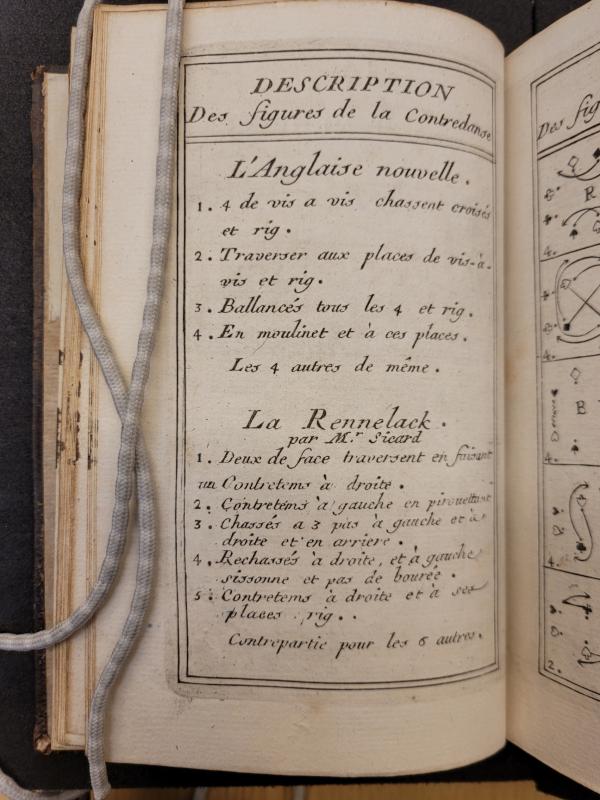 DESCRIPTION
Des figures de la Contredanse
L'Anglaise nouvelle.
1. 4 de vis a vis chassent croisés
et rig.
2. Traverser aux places de vis-à-
vis et rig.
3. Ballancés tous les 4 et rig.
4. En moulinet et à ces places.
Les 4 autres de même.
La Rennelack.
par Mr Sicard
1. Deux de face traversent en faisant
un Contretems à droite.
2. Contretems à gauche en pirouettant
3. Chassés a 3 pas à gauche et à
droite et en arriere.
4. Rechassés à droite, et à gauche
sissonne et pas de bourée.
5. Contretems à droite et à ses
places rig..
Contrepartie pour les 6 autres.
Des fig
R
4.
4.
B
4.
4.
2.